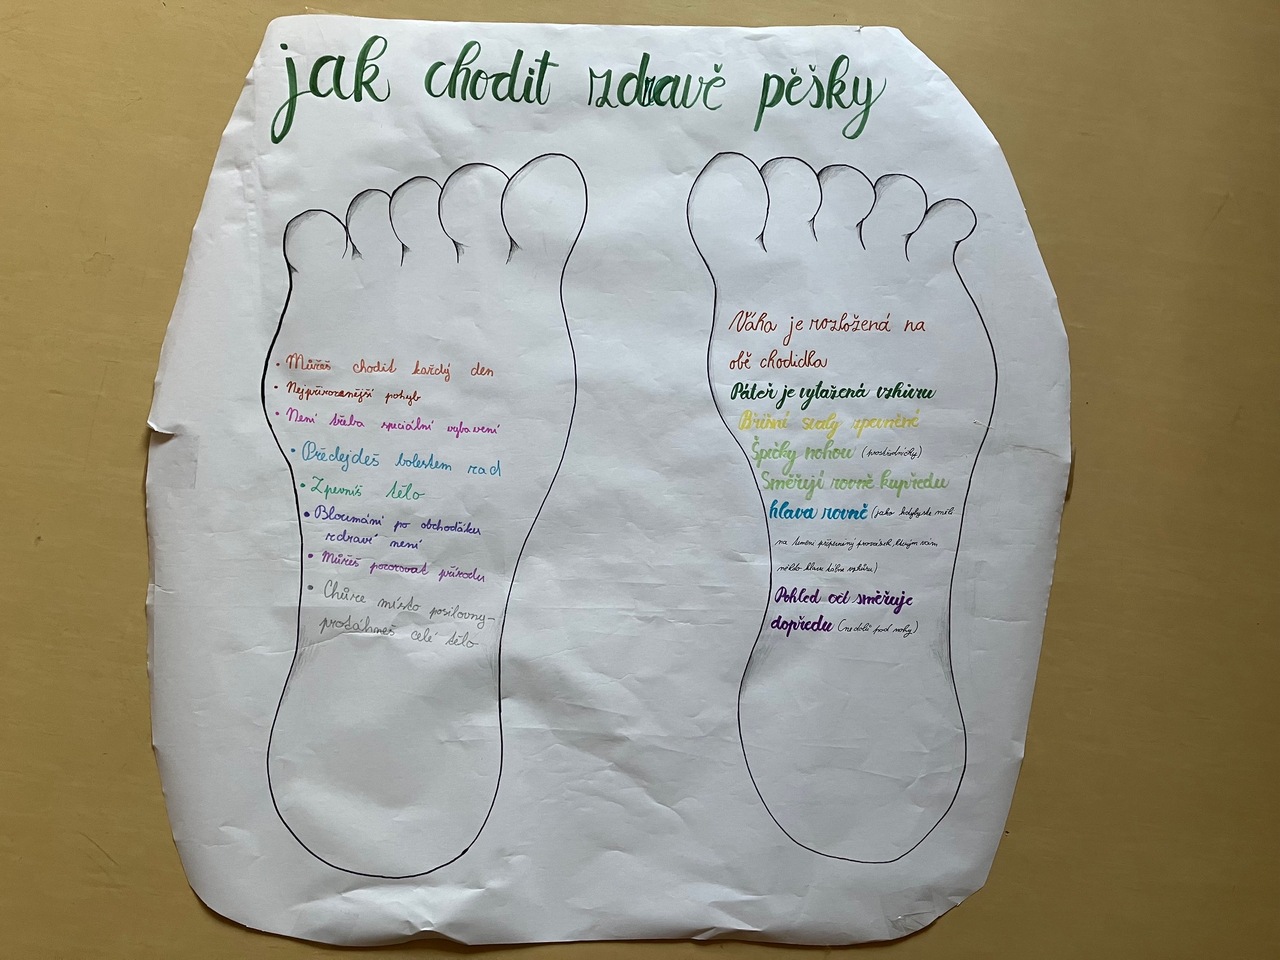 jak chodit zdravě pěšky
• Můžeš chodit každý den
• Nejpřirozenější pohyb
• Není třeba speciální vybavení
• Předejdeš bolestem zad
• Zpevníš tělo
• Bloumání po obchoďáku
zdravé není
• Můžeš pozorovat přírodu
• Chůze místo posilovny –
protáhneš celé tělo
Váha je rozložená na
obě chodidla
Páteř je vytažená vzhůru
Břišní svaly zpevněné
Špičky nohou (prostředníčky)
Směřují rovně kupředu
hlava rovně (jako kdybyste měli
na temeni připevněný provázek, kterým vám
někdo hlavu táhne vzhůru)
Pohled očí směřuje
dopředu (ne dolů pod nohy)